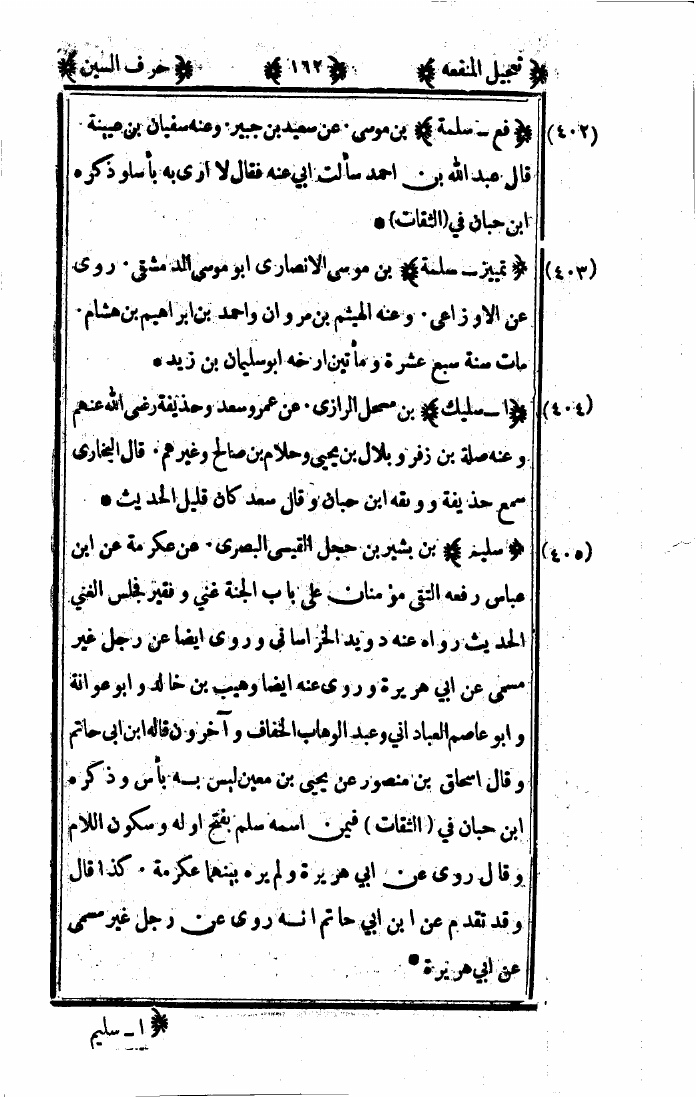 ﴿ تعجيل المنفعه ﴾ ﴿ ١٦٢ ﴾ ﴿ حرف السين ﴾
(٤٠٢) ﴿ فع ـ سلمة ﴾ بن موسى · عن سعيد بن جبير · وعنه سفيان بن عيينة ·
قال عبد الله بن احمد سألت ابي عنه فقال لا ارى به بأسا وذكره
ابن حبان في (الثقات) *
(٤٠٣) ﴿ تمييز ـ سلمة ﴾ بن موسى الانصارى ابو موسى الدمشقى · روى
عن الاوزاعى · وعنه الهيثم بن مروان واحمد بن ابراهيم بن هشام ·
مات سنة سبع عشرة ومأتين ارخه ابو سليمان بن زيد *
(٤٠٤) ﴿ ا ـ سليك ﴾ بن مسحل الرازى · عن عمر وسعد وحذيفة رضى الله عنهم
وعنه صلة بن زفر وبلال بن يحيى وحلام بن صالح وغيرهم · قال البخارى
سمع حذيفة ووثقه ابن حبان وقال سعد كان قليل الحديث *
(٤٠٥) ﴿ سليم ﴾ بن بشير بن حجل القيسى البصرى · عن عكرمة عن ابن
عباس رفعه التقى مؤمنان على باب الجنة غني وفقير فجلس الغني
الحديث رواه عنه دويد الخراسانى وروى ايضا عن رجل غير
مسمى عن ابي هريرة وروى عنه ايضا وهيب بن خالد وابو عوانة
وابو عاصم العباداني وعبد الوهاب الخفاف وآخرون قاله ابن ابى حاتم
وقال اسحاق بن منصور عن يحيى بن معين ليس به بأس وذكره
ابن حبان في (الثقات) فيمن اسمه سلم بفتح اوله وسكون اللام
وقال روى عن ابي هريرة ولم يره بينهما عكرمة · كذا قال
وقد تقدم عن ابن ابي حاتم انه روى عن رجل غير مسمى
عن ابي هريرة *
﴿ ا ـ سليم